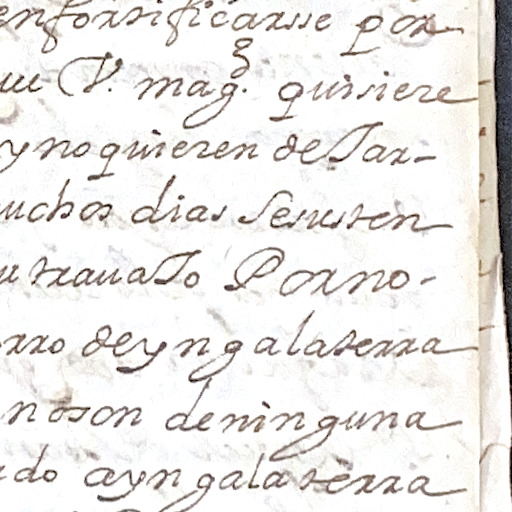 enfortificarsse por
uu V. mag.d quisiere
y no quieren de Tar-
uchos dias se susten
u travaJo Por no-
orro de yngalaterra
no son de ninguna
do a yngalaterra